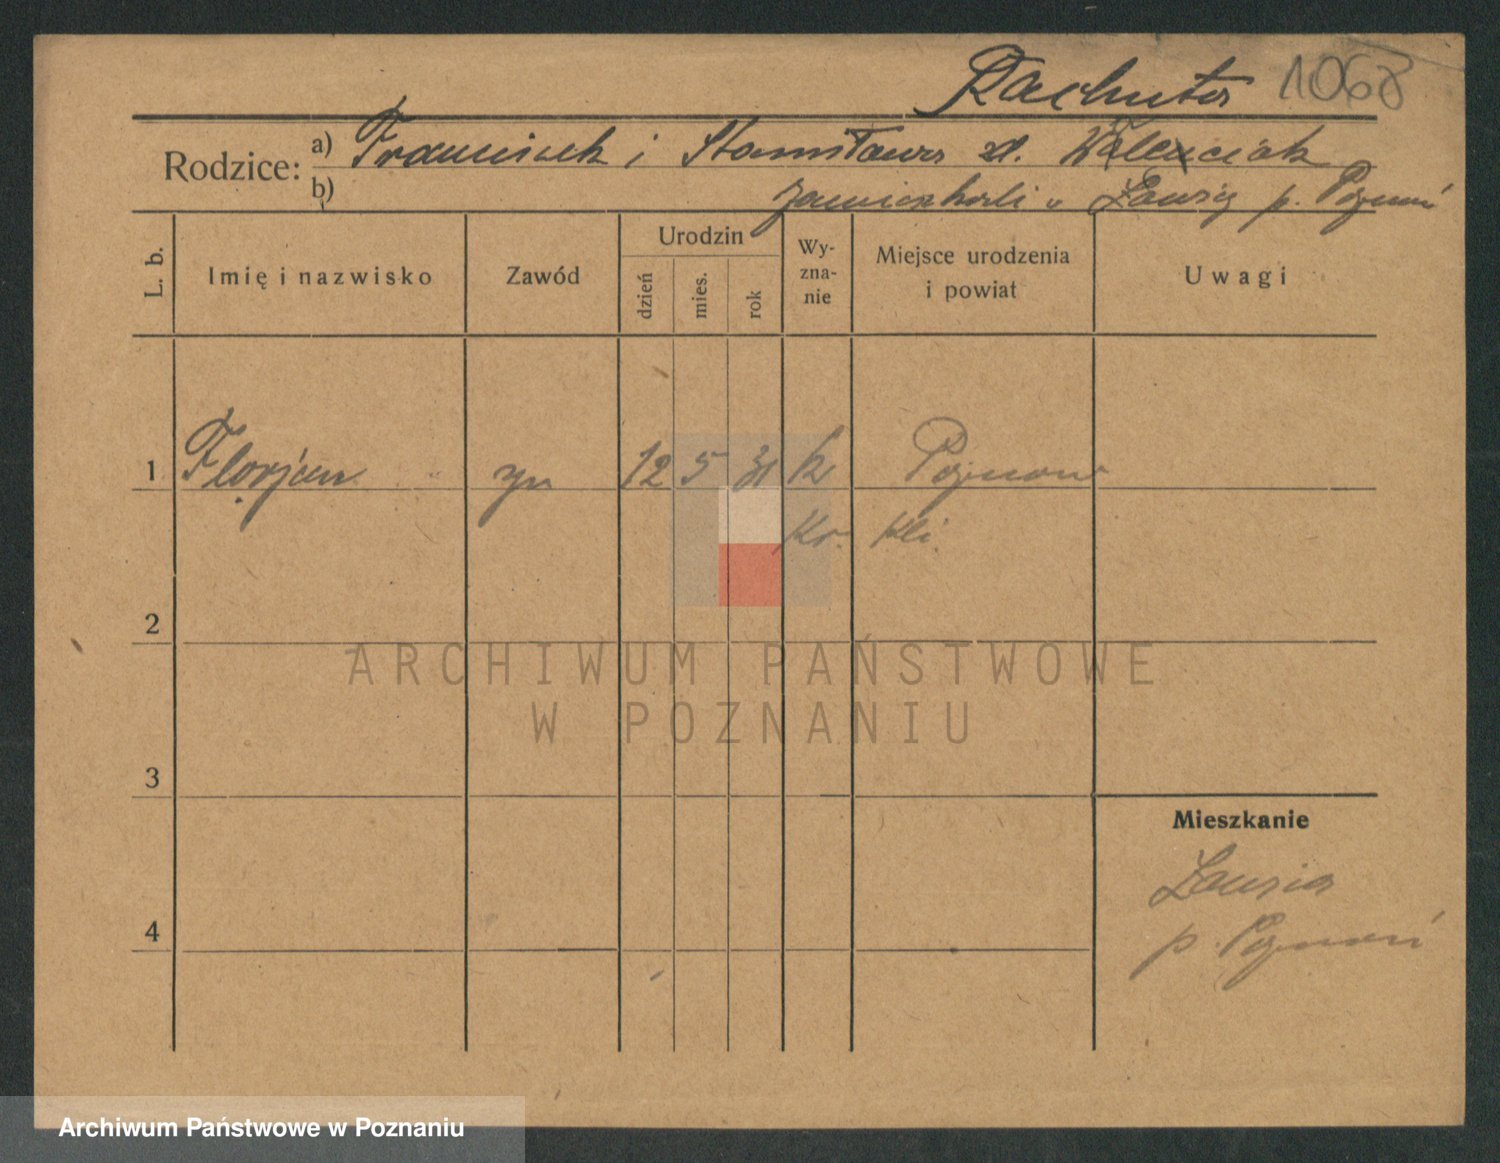 Rachuta 1068
Rodzice: a) Franciszek i Stanisława zd. Walenciak
b) zamieszkali w Ławica p. Poznań
L. b. Imię i nazwisko Zawód Urodzin dzień mies. rok Wy-zna-nie Miejsce urodzenia i powiat Uwagi
1 Florjan syn 12 5 31 k Poznań
Kr. Kli.
2
3
Mieszkanie
Ławica
4
p. Poznań
ARCHIWUM PAŃSTWOWE
W POZNANIU
Archiwum Państwowe w Poznaniu